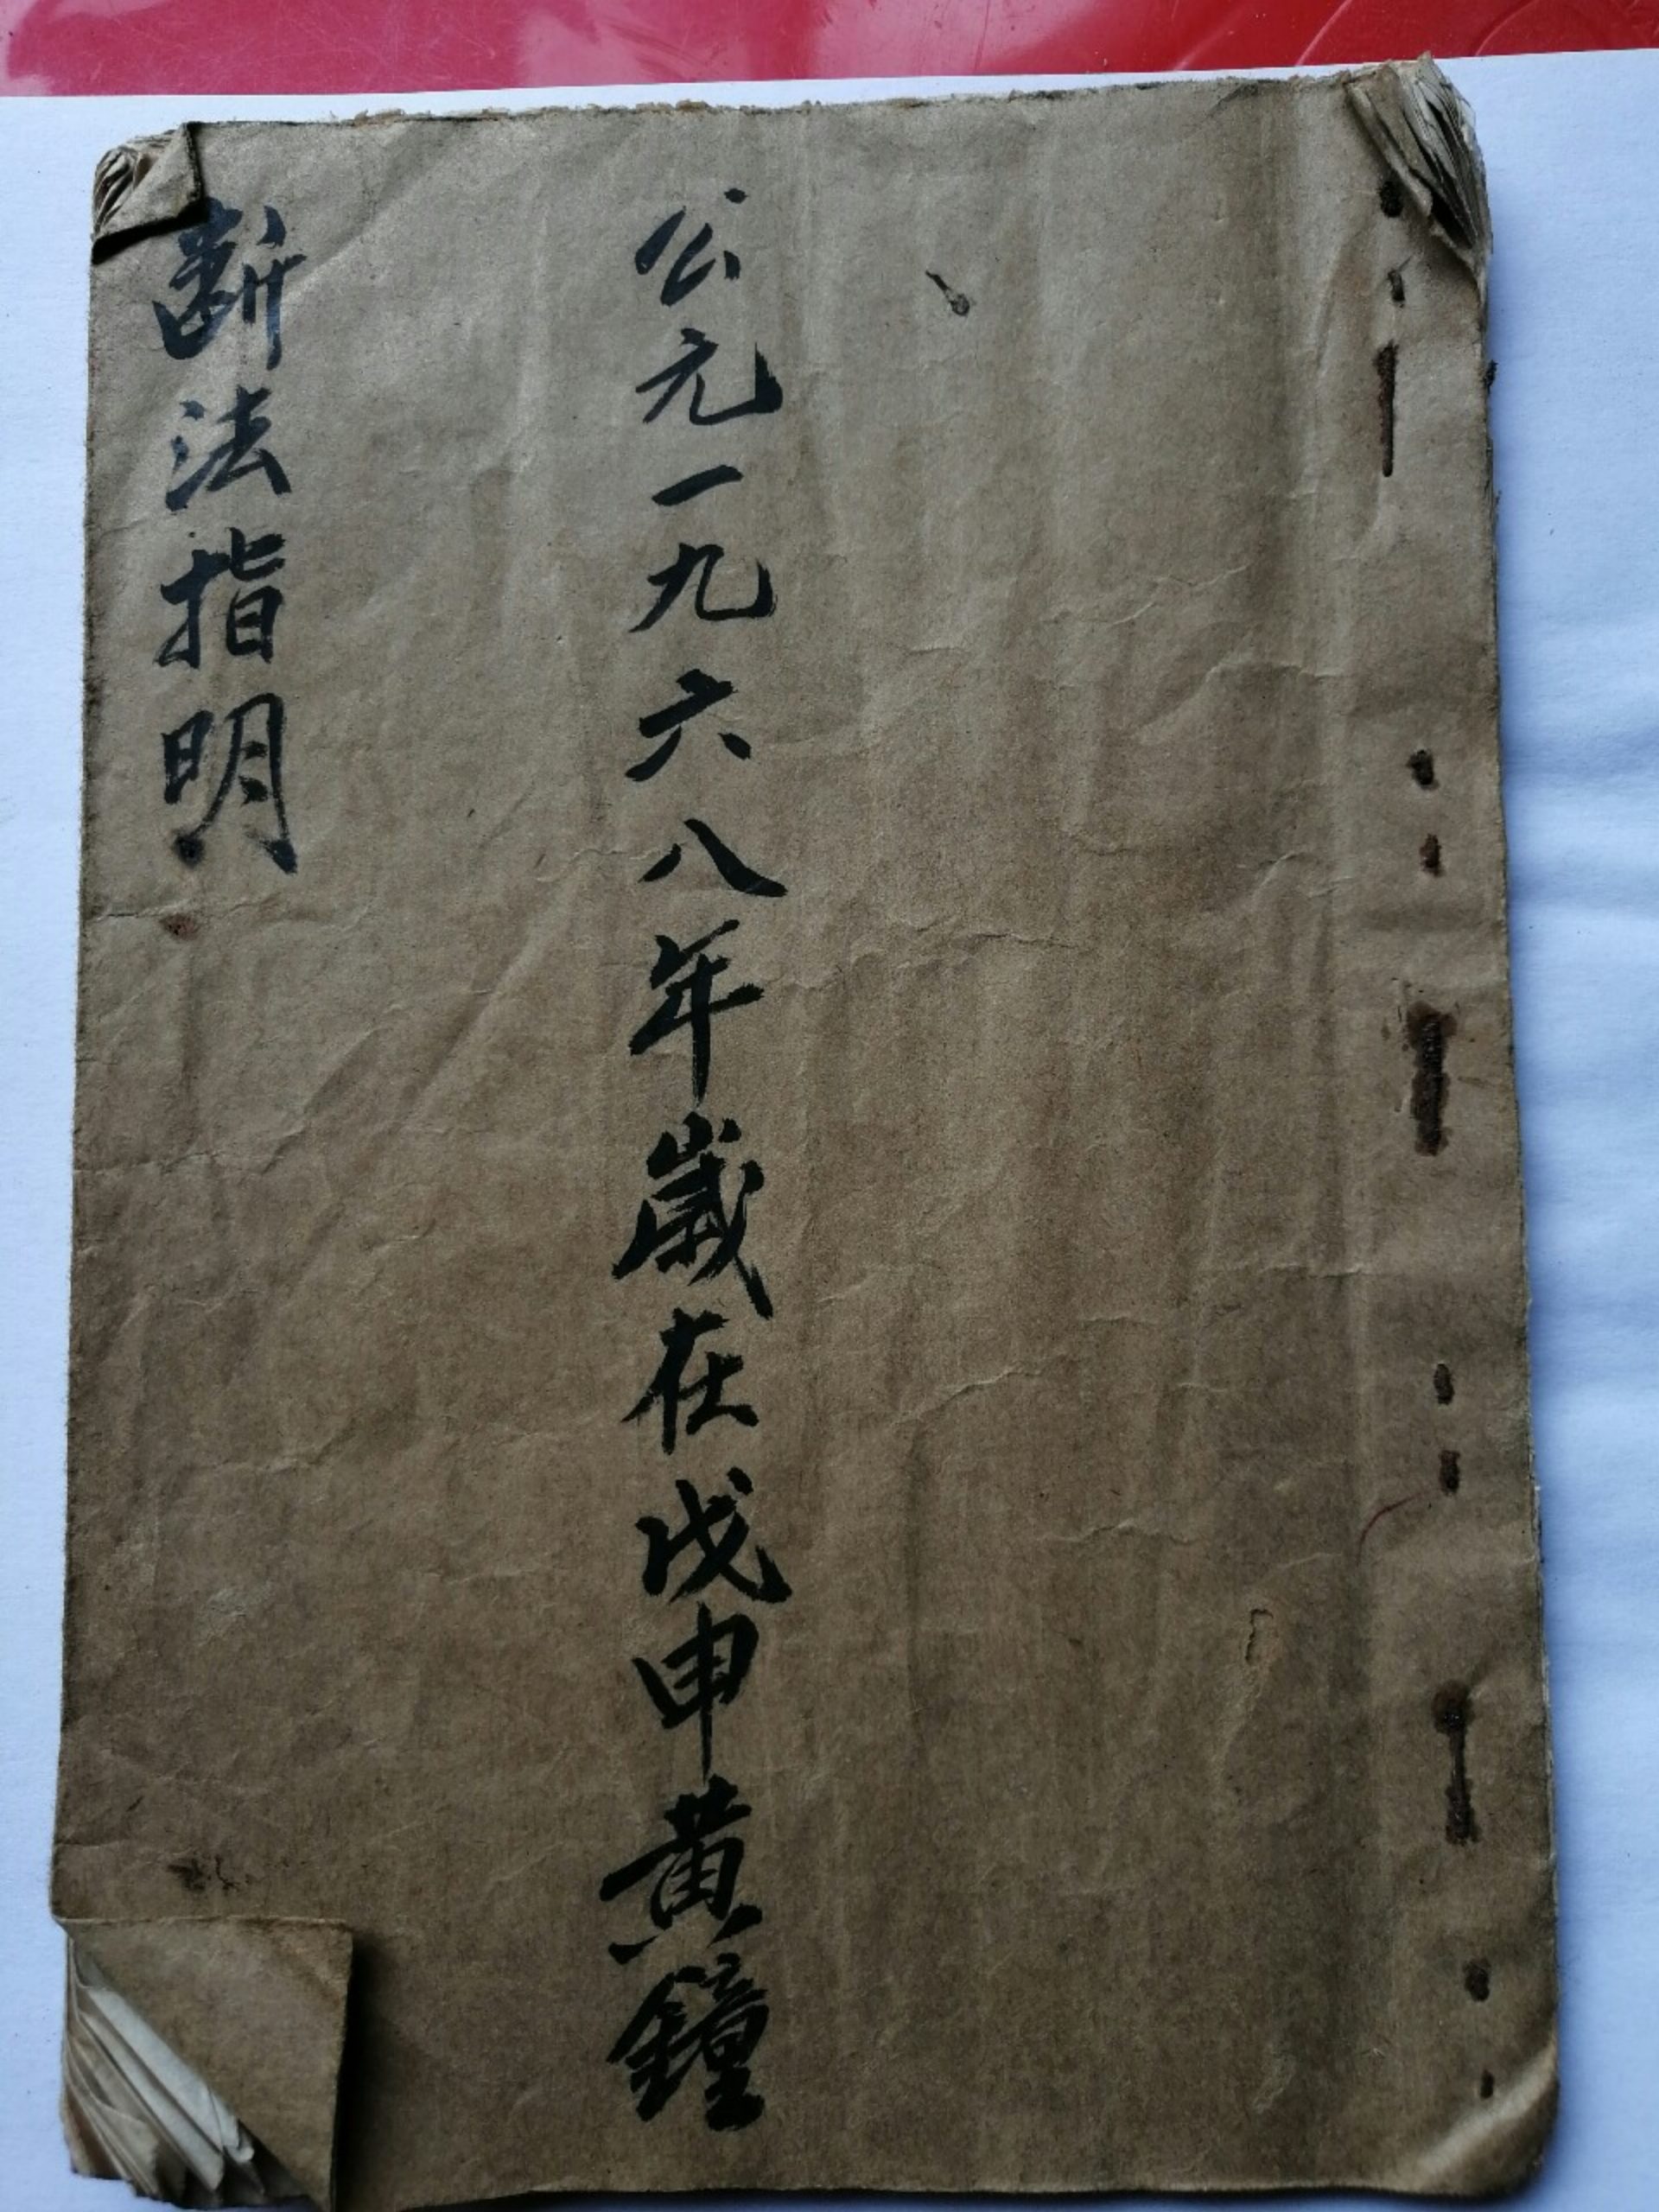 公元一九六八年歲在戊申黃鐘
斷法指明